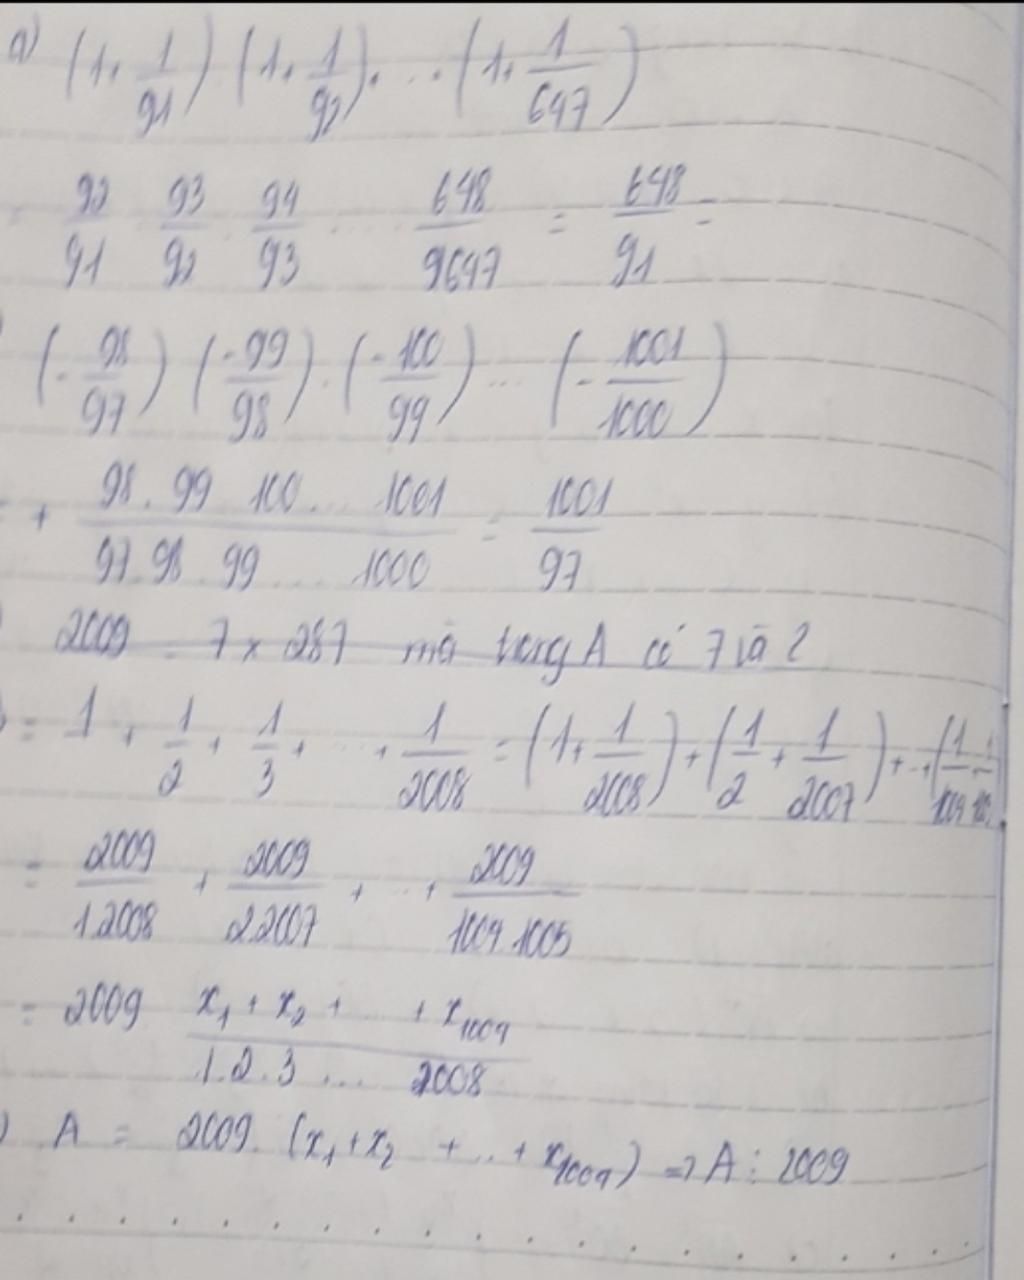 a) (1 + 1/91) (1 + 1/92) . ... (1 + 1/647)
= 92/91 . 93/92 . 94/93 ... 648/9647 = 648/91 =
(- 98/97) (- 99/98) . (- 100/99) ... (- 1001/1000)
= + 98 . 99 . 100 ... 1001 / 97 . 98 . 99 ... 1000 = 1001/97
2009 = 7 x 287 mà A có 7 và 2
= 1 + 1/2 + 1/3 + ... + 1/2008 = (1 + 1/2008) + (1/2 + 1/2007) + ... + (1/1004
= 2009/1.2008 + 2009/2.2007 + ... + 2009/1004.1005
= 2009 x₁ + x₂ + ... + x₁₀₀₄ / 1.2.3 ... 2008
) A = 2009. (x₁ + x₂ + ... + x₁₀₀₄) => A ⋮ 2009